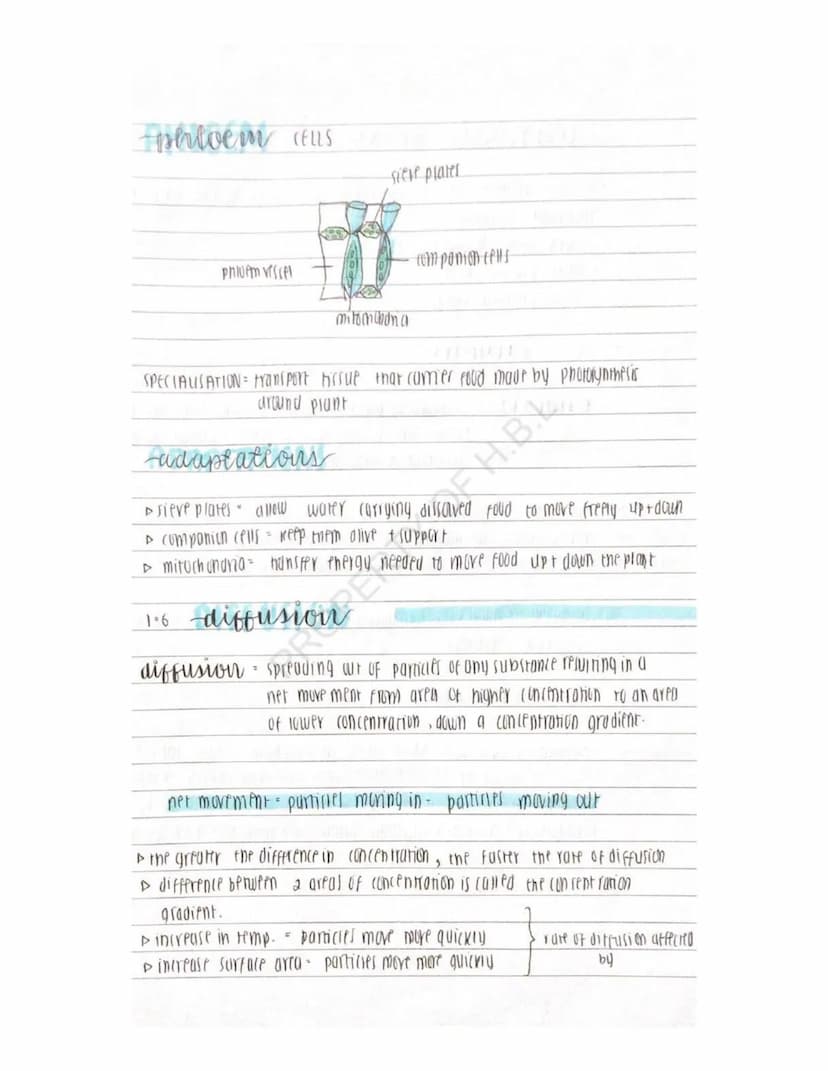 phloem CELLS
sieve plates
companion cells
phloem vessel
mitochondria
SPECIALISATION = transport tissue that carries food made by photosynthesis
around plant
adaptations
▷ sieve plates = allow water carrying dissolved food to move freely up + down
▷ companion cells = keep them alive + support
▷ mitochondria = transfer energy needed to move food up + down the plant
PROPERTY OF H.B.L
1.6 diffusion
diffusion = spreading out of particles of any substance resulting in a
net movement from area of higher concentration to an area
of lower concentration, down a concentration gradient.
net movement = particles moving in - particles moving out
▷ the greater the difference in concentration, the faster the rate of diffusion
▷ difference between 2 areas of concentration is called the concentration
gradient.
▷ increase in temp. = particles move more quickly
▷ increase surface area = particles move more quickly
rate of diffusion affected
by